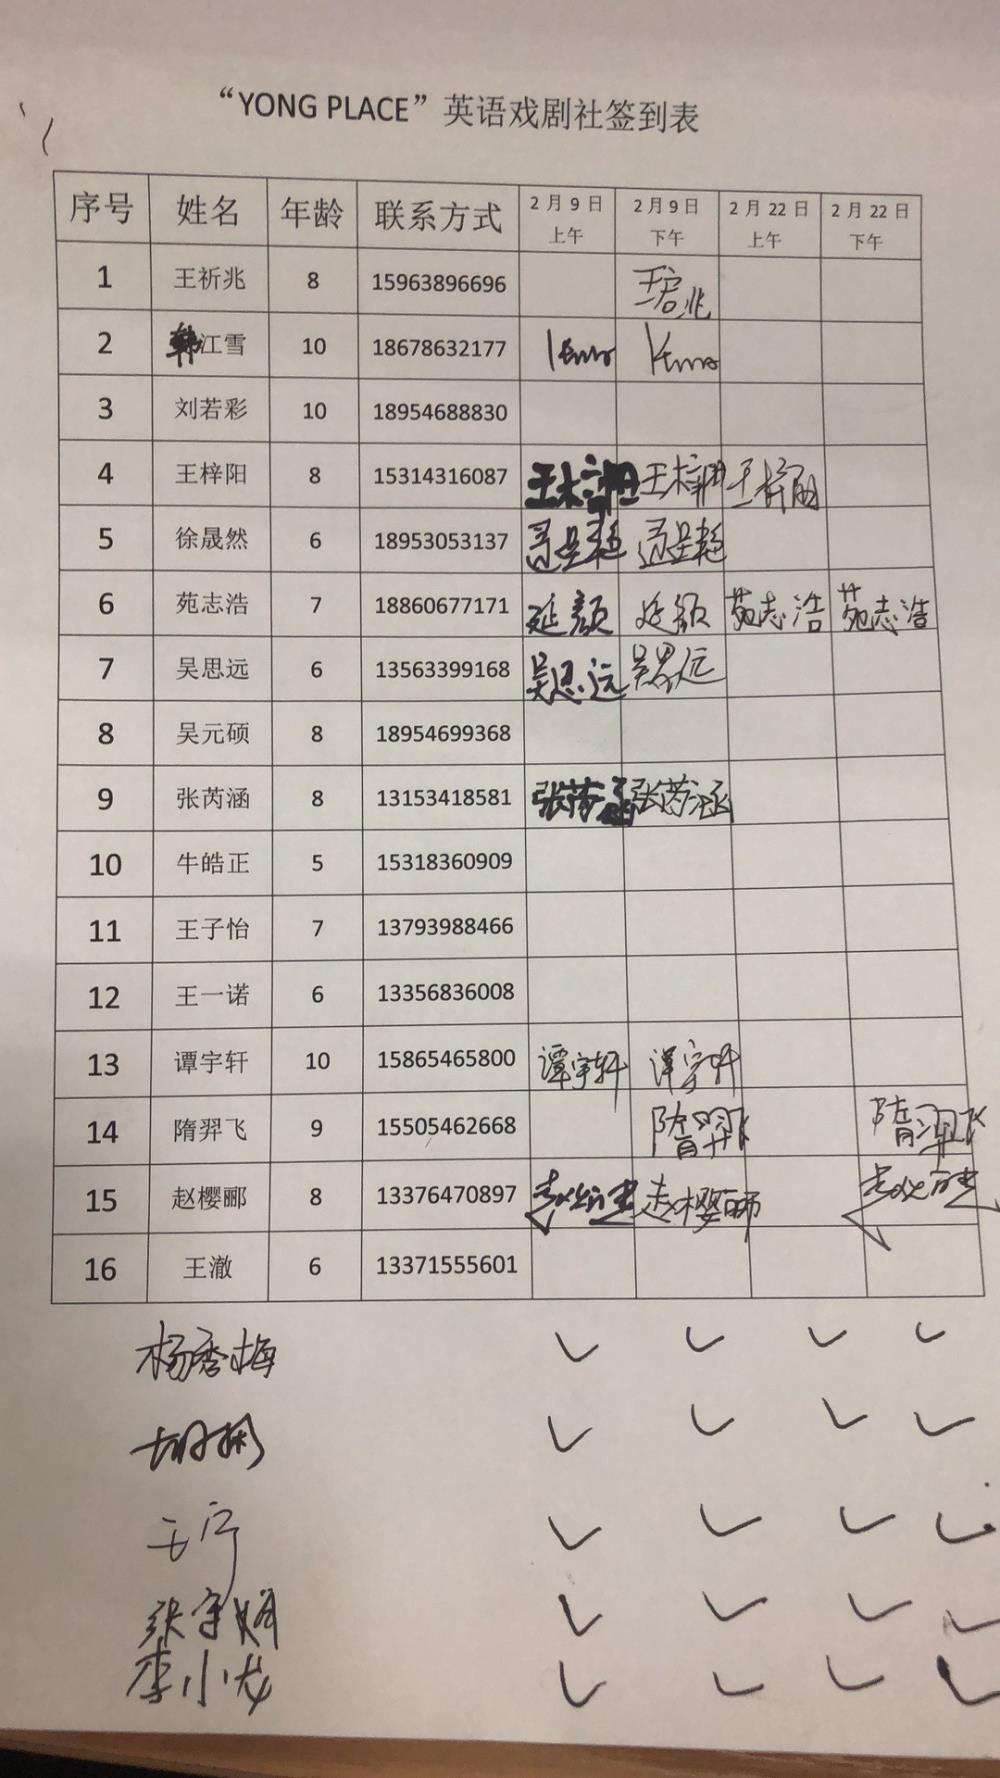 “YONG PLACE”英语戏剧社签到表
序号 姓名 年龄 联系方式 2月9日上午 2月9日下午 2月22日上午 2月22日下午
1 王祈兆 8 15963896696
2 韩江雪 10 18678632177
3 刘若彩 10 18954688830
4 王梓阳 8 15314316087 王梓阳 王梓阳 王梓阳
5 徐晟然 6 18953053137
6 苑志浩 7 18860677171 延颜 延颜 苑志浩 苑志浩
7 吴思远 6 13563399168 吴思远 吴思远
8 吴元硕 8 18954699368
9 张芮涵 8 13153418581 张芮涵 张芮涵
10 牛皓正 5 15318360909
11 王子怡 7 13793988466
12 王一诺 6 13356836008
13 谭宇轩 10 15865465800 谭宇轩 谭宇轩
14 隋羿飞 9 15505462668 隋羿飞 隋羿飞
15 赵樱郦 8 13376470897 赵樱郦
16 王澈 6 13371555601
杨秀梅 ✓ ✓ ✓ ✓
✓ ✓ ✓ ✓
王宁 ✓ ✓ ✓ ✓
张宇娟 ✓ ✓ ✓ ✓
李小龙 ✓ ✓ ✓ ✓